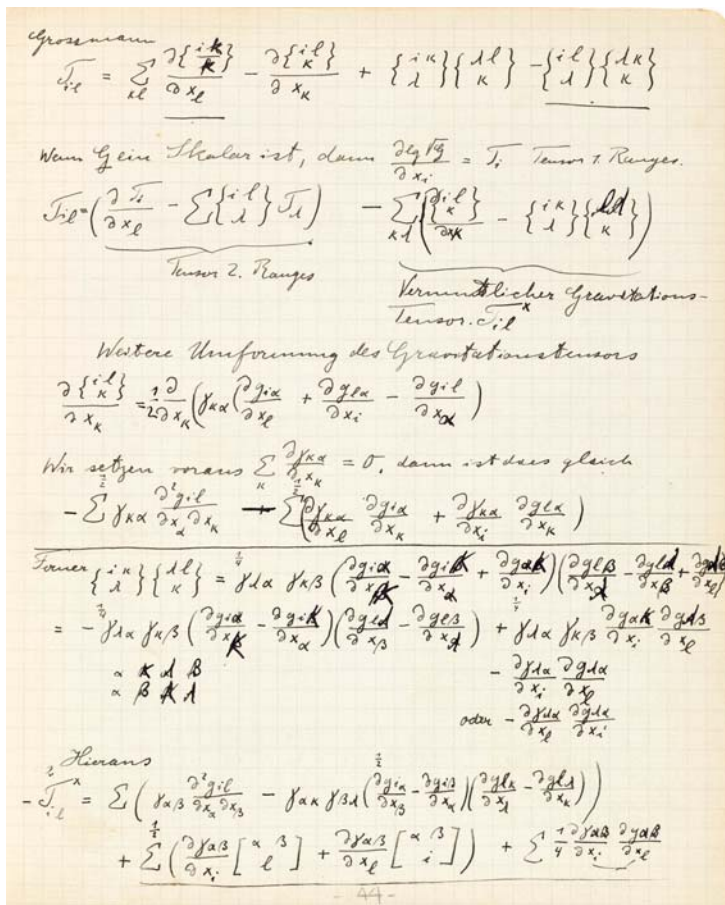 Grossmann
T_{il} = \sum_{κl} \frac{∂\{^{iκ}_{κ}\}}{∂x_l} - \frac{∂\{^{il}_{κ}\}}{∂x_κ} + \{^{iκ}_{λ}\}\{^{λl}_{κ}\} - \{^{il}_{λ}\}\{^{λκ}_{κ}\}
Wenn G ein Skalar ist, dann \frac{∂ lg √G}{∂x_i} = T_i Tensor 1. Ranges.
T_{il} = (\frac{∂T_i}{∂x_l} - \sum \{^{il}_{λ}\} T_λ) - \sum_{κλ} (\frac{∂\{^{il}_{κ}\}}{∂x_κ} - \{^{iκ}_{λ}\}\{^{λl}_{κ}\})
Tensor 2. Ranges
Vermutlicher Gravitations-
Tensor. T_{il}^x
Weitere Umformung des Gravitationstensors
\frac{∂\{^{il}_{κ}\}}{∂x_κ} = \frac{1}{2} \frac{∂}{∂x_κ} (γ_{κα} (\frac{∂g_{iα}}{∂x_l} + \frac{∂g_{lα}}{∂x_i} - \frac{∂g_{il}}{∂x_α})
Wir setzen voraus \sum_κ \frac{∂γ_{κα}}{∂x_κ} = 0, dann ist dies gleich
- \frac{1}{2} \sum γ_{κα} \frac{∂^2 g_{il}}{∂x_α ∂x_κ} + \frac{1}{2} \sum (\frac{∂γ_{κα}}{∂x_l} \frac{∂g_{iα}}{∂x_κ} + \frac{∂γ_{κα}}{∂x_i} \frac{∂g_{lα}}{∂x_κ})
Ferner \{^{iκ}_{λ}\}\{^{λl}_{κ}\} = \frac{1}{4} γ_{λα} γ_{κβ} (\frac{∂g_{iα}}{∂x_κ} - \frac{∂g_{iκ}}{∂x_α} + \frac{∂g_{ακ}}{∂x_i}) (\frac{∂g_{lβ}}{∂x_λ} - \frac{∂g_{lλ}}{∂x_β} + \frac{∂g_{λβ}}{∂x_l})
= - \frac{1}{4} γ_{λα} γ_{κβ} (\frac{∂g_{iα}}{∂x_κ} - \frac{∂g_{iκ}}{∂x_α}) (\frac{∂g_{lλ}}{∂x_β} - \frac{∂g_{lβ}}{∂x_λ}) + \frac{1}{4} γ_{λα} γ_{κβ} \frac{∂g_{ακ}}{∂x_i} \frac{∂g_{λβ}}{∂x_l}
α κ λ β
α β κ λ
- \frac{∂γ_{λα}}{∂x_i} \frac{∂g_{λα}}{∂x_l}
oder - \frac{∂γ_{λα}}{∂x_l} \frac{∂g_{λα}}{∂x_i}
Hieraus
- 2 T_{il}^x = \sum (γ_{αβ} \frac{∂^2 g_{il}}{∂x_α ∂x_β} - \frac{1}{2} γ_{ακ} γ_{βλ} (\frac{∂g_{iα}}{∂x_β} - \frac{∂g_{iβ}}{∂x_α}) (\frac{∂g_{lκ}}{∂x_λ} - \frac{∂g_{lλ}}{∂x_κ}))
+ \frac{1}{2} \sum (\frac{∂γ_{αβ}}{∂x_i} [^{αβ}_{l}] + \frac{∂γ_{αβ}}{∂x_l} [^{αβ}_{i}]) + \sum \frac{1}{4} \frac{∂γ_{αβ}}{∂x_i} \frac{∂g_{αβ}}{∂x_l}
- 44 -